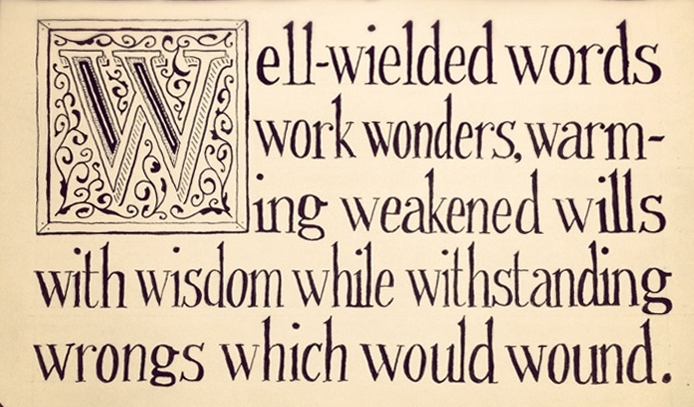 Well-wielded words
work wonders, warm-
ing weakened wills
with wisdom while withstanding
wrongs which would wound.